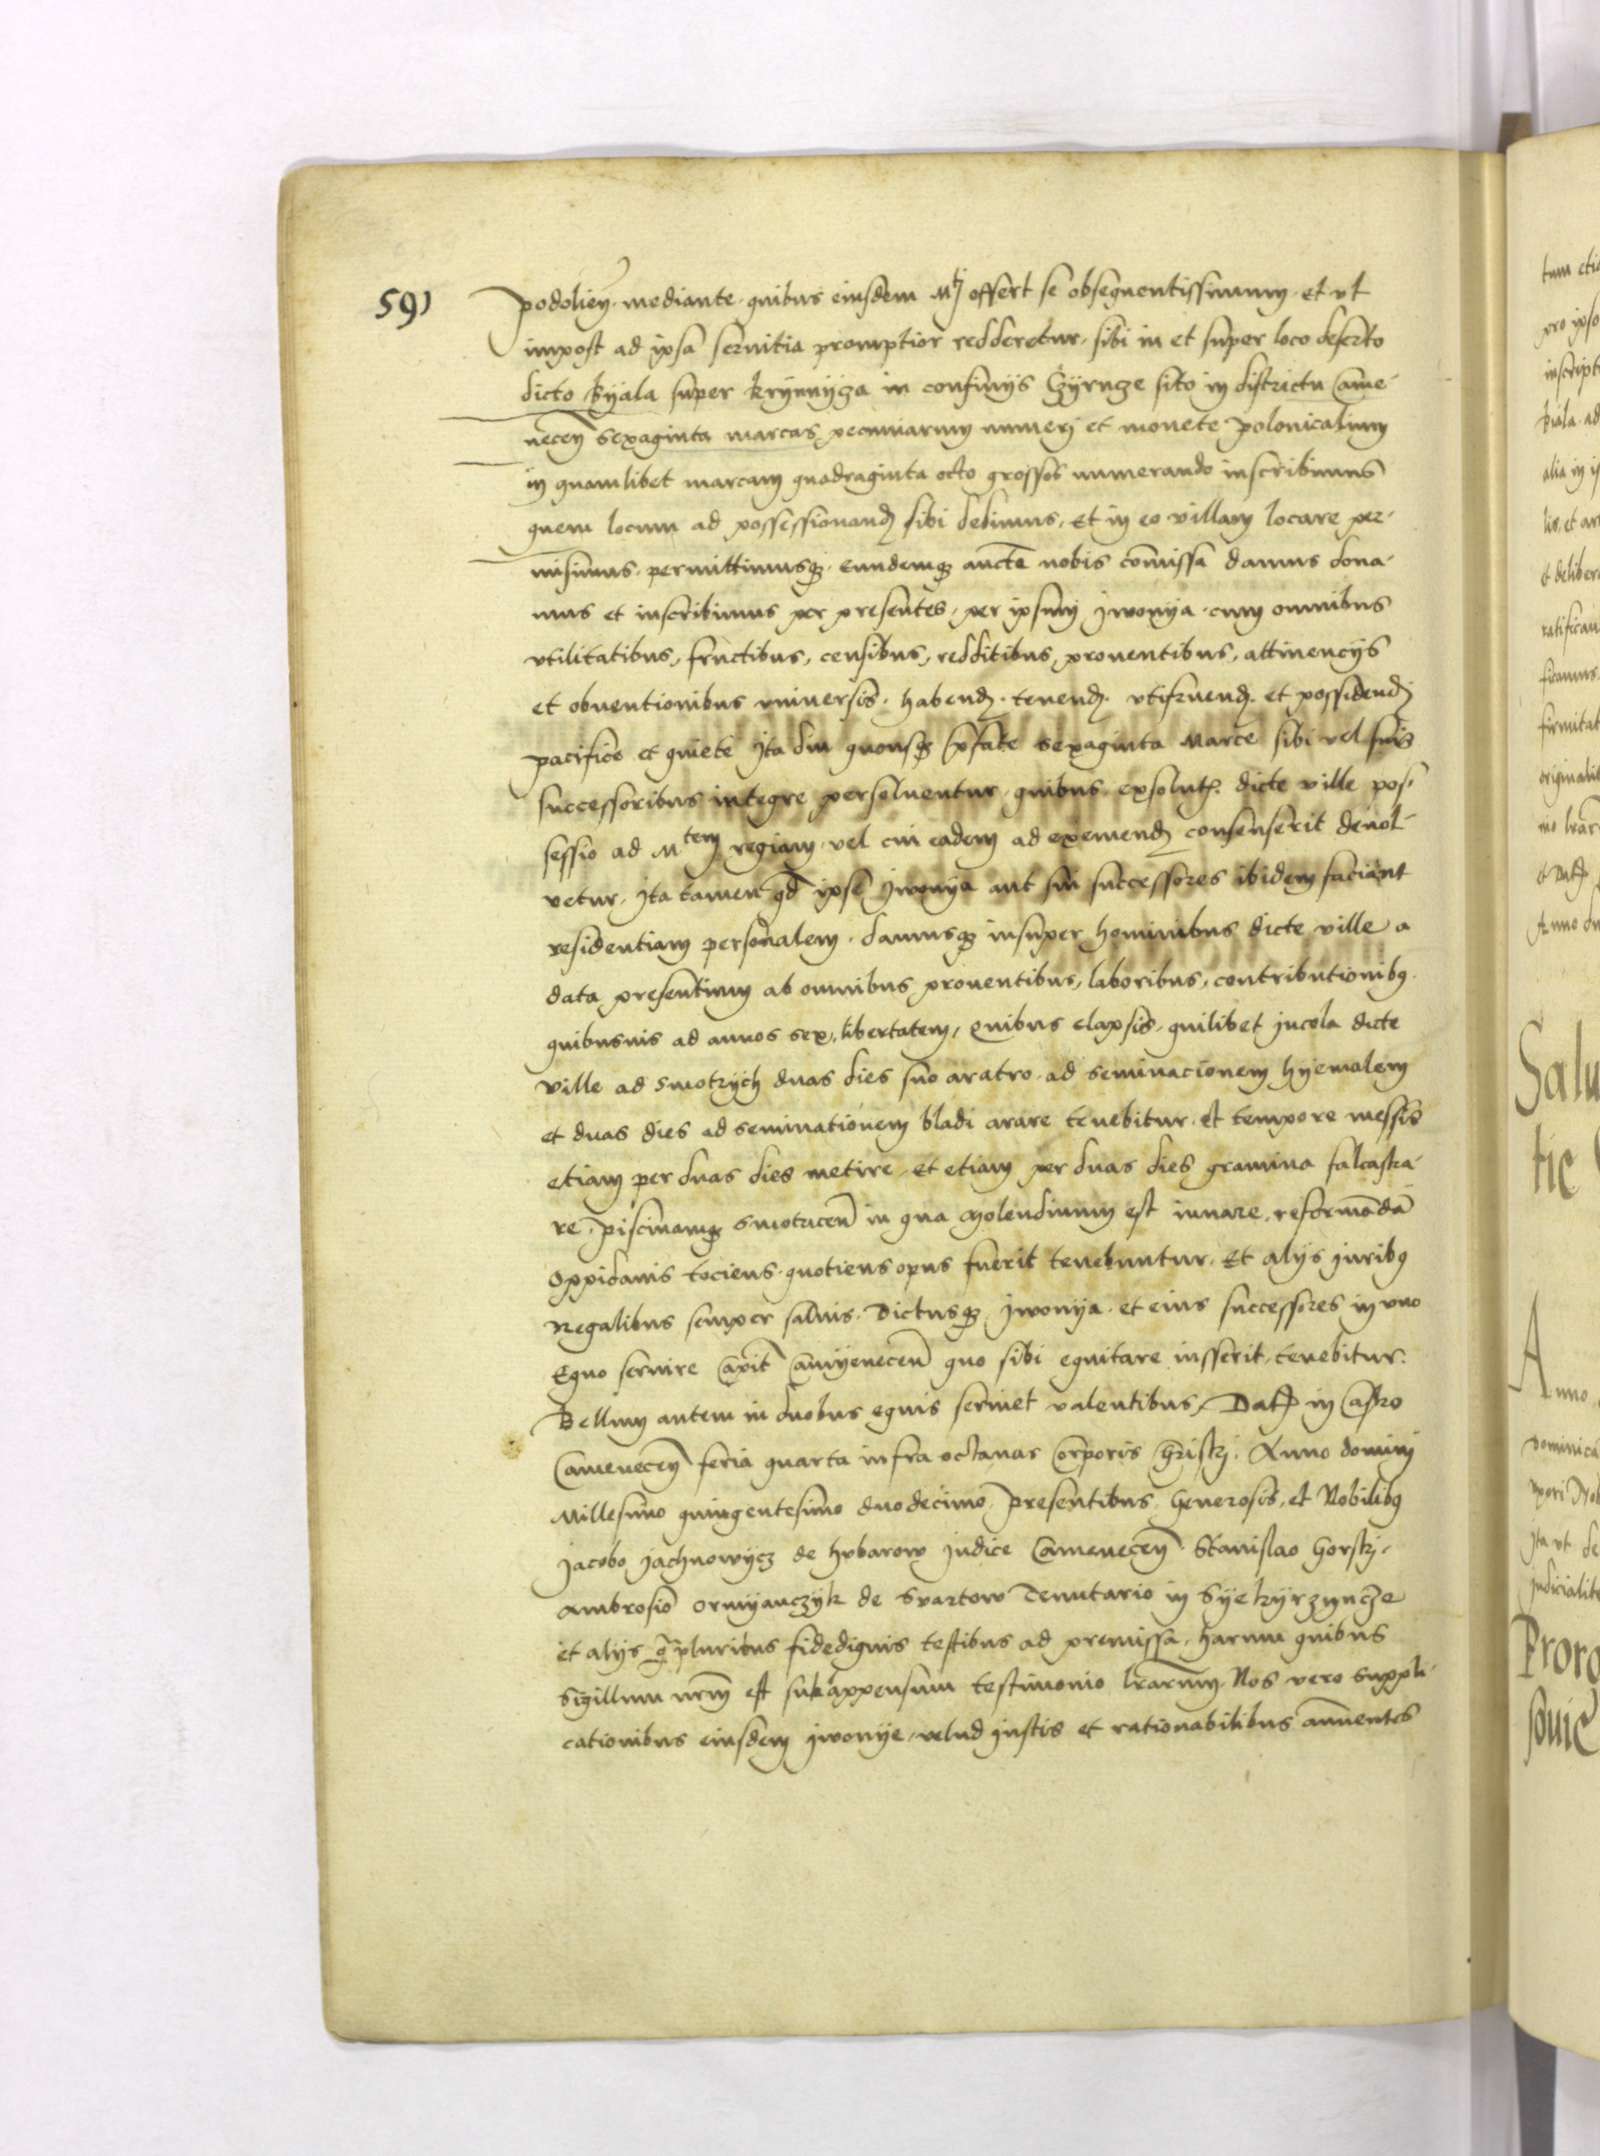 591
podolien̄ mediante quibus eiusdem M̃tj offert se obsequentissimum et ut
impost ad ipsa seruitia promptior redderetur sibi in et super loco deserto
dicto Byala super krynnycza in confinijs Czyrncze sito in districtu Came-
necen̄ sexaginta marcas pecuniarum numerj et monete polonicalium
in quamlibet marcam quadraginta octo grossos numerando inscribimus
quem locum ad possessionand sibi dedimus, et in eo villam locare per-
misimus permittimusq eundemq aucte nobis comissa damus dona-
mus et inscribimus per presentes, per ipsum Jwonya cum omnibus
vtilitatibus, fructibus, censibus, redditibus, prouentibus, attinencijs
et obuentionibus vniuersis habend tenend utifruend et possidend
pacifice et quiete Jta diu quousq p̃fate sexaginta Marce sibi vel suis
successoribus integre persoluentur quibus exsolut dicte ville pos-
sessio ad Mtem regiam vel cui eadem ad eximend consenserit deuol-
vetur, Jta tamen qd ipse Jwonya aut sui successores ibidem faciant
residentiam personalem damusq insuper hominibus dicte ville a
data presentium ab omnibus prouentibus, laboribus, contributionibq
quibusuis ad annos sex, libertatem, Quibus elapsis quilibet Jncola dicte
ville ad Smotrych duas dies suo aratro ad seminacionem hyemalem
et duas dies ad seminationem bladi arare tenebitur et tempore messis
etiam per duas dies metire et etiam per duas dies gramina falcastra-
re, piscinamq Smotricen̄ in qua molendinum est iuuare reformādā
Oppidanis tociens quotiens opus fuerit tenebuntur, Et alijs juribq
Regalibus semper saluis. Dictusq Jwonya et eius successores in vno
Equo seruire Capit̄ Camyenecen̄ quo sibi equitare iusserit, tenebitur.
Bellum autem in duobus equis seruiet valentibus, Dat in Castro
Camenecen̄ feria quarta infra octauas Corporis Christj. Anno dominj
Millesimo quingentesimo duodecimo, presentibus Generosis, et Nobilibq
Jacobo Jachnowycz de hubarow Judice Camenecen̄ Stanislao Gorskj,
Ambrosio Ormyanczyk de Swartow Tenutario in Syekyrzyncze
et alijs q̃pluribus fidedignis testibus ad premissa, harum quibus
Sigillum nr̄m est subappensum testimonio lrarum, Nos vero suppli-
cationibus eiusdem Jwonye, velud justis et rationabilibus annuentes